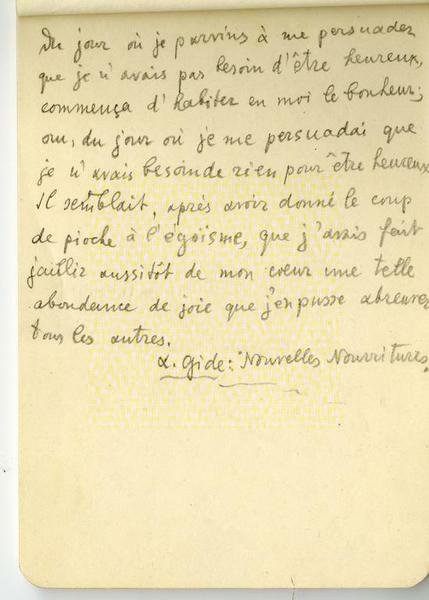 Du jour où je parvins à me persuader
que je n'avais pas besoin d'être heureux,
commença d'habiter en moi le bonheur;
oui, du jour où je me persuadai que
je n'avais besoin de rien pour être heureux.
Il semblait, après avoir donné le coup
de pioche à l'égoïsme, que j'avais fait
jaillir aussitôt de mon cœur une telle
abondance de joie que j'en pusse abreuver
tous les autres.
A. Gide: "Nouvelles Nourritures.